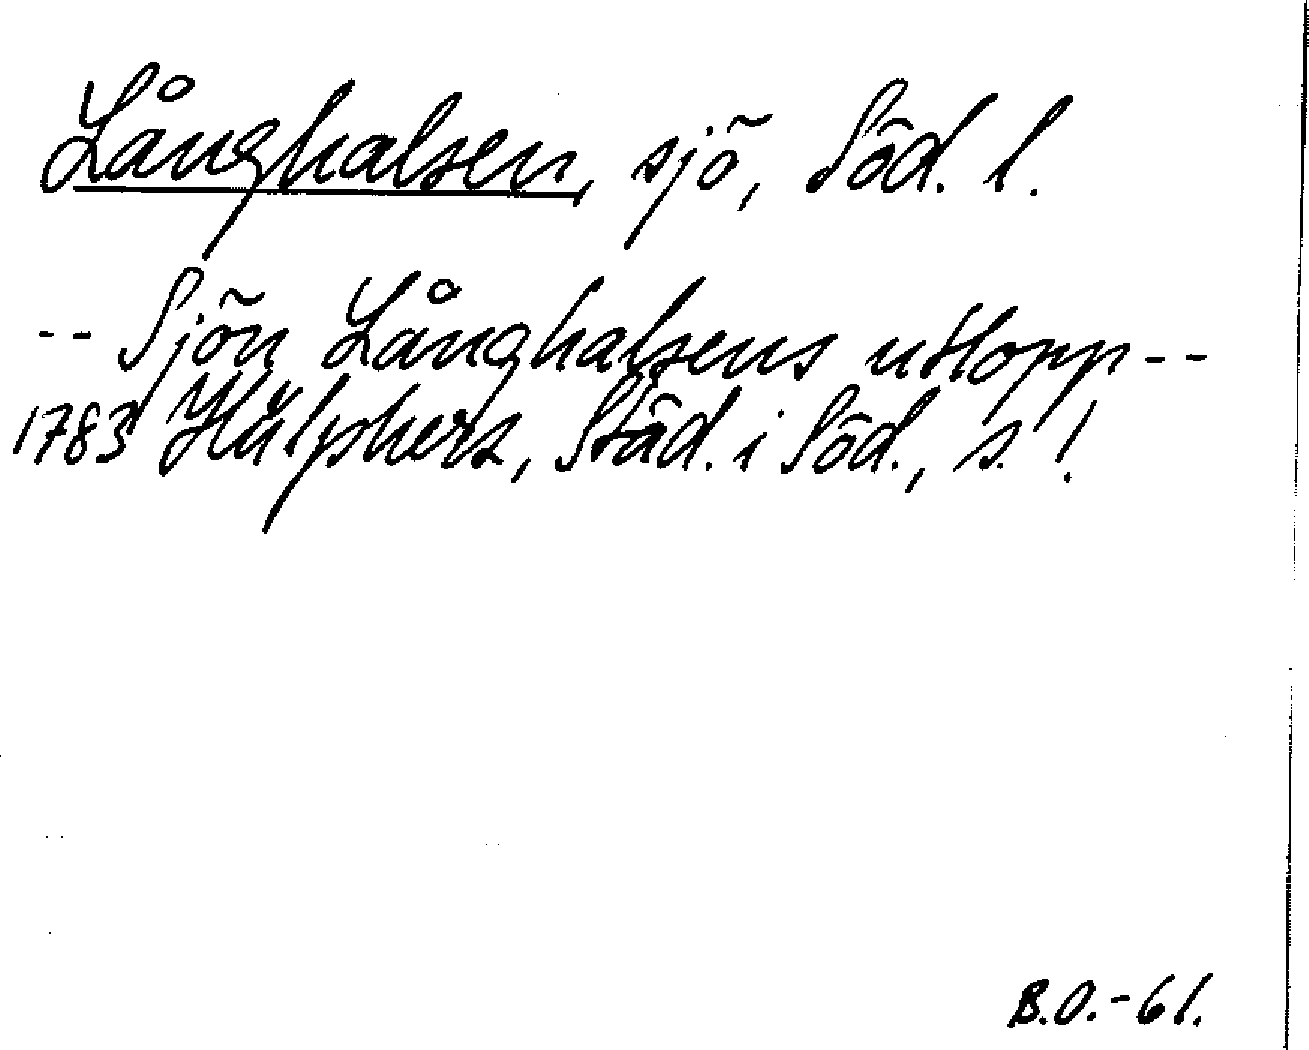 Långhalsen, sjö, Söd. l.
-- Sjön Långhalsens utlopp --
1783 Hülphers, Städ. i Söd., s. 1.
B.O.-61.